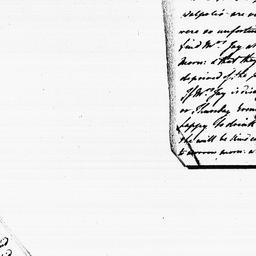 Walpole's are v
were so unfortun
find Mrs. Jay at
morn: & that they
deprived of the p
If Mrs. Jay is dis
or Thursday Even
happy to drink
she will be kind e
to morrow morn: w